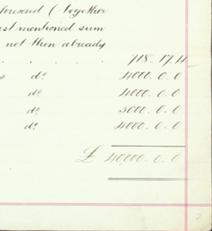 aforesaid (together
est mentioned sum
not then already
718. 17. 11
s do. 4000. 0. 0
do. 4000. 0. 0
do. 3000. 0. 0
do. 4000. 0. 0
£ 40000. 0. 0